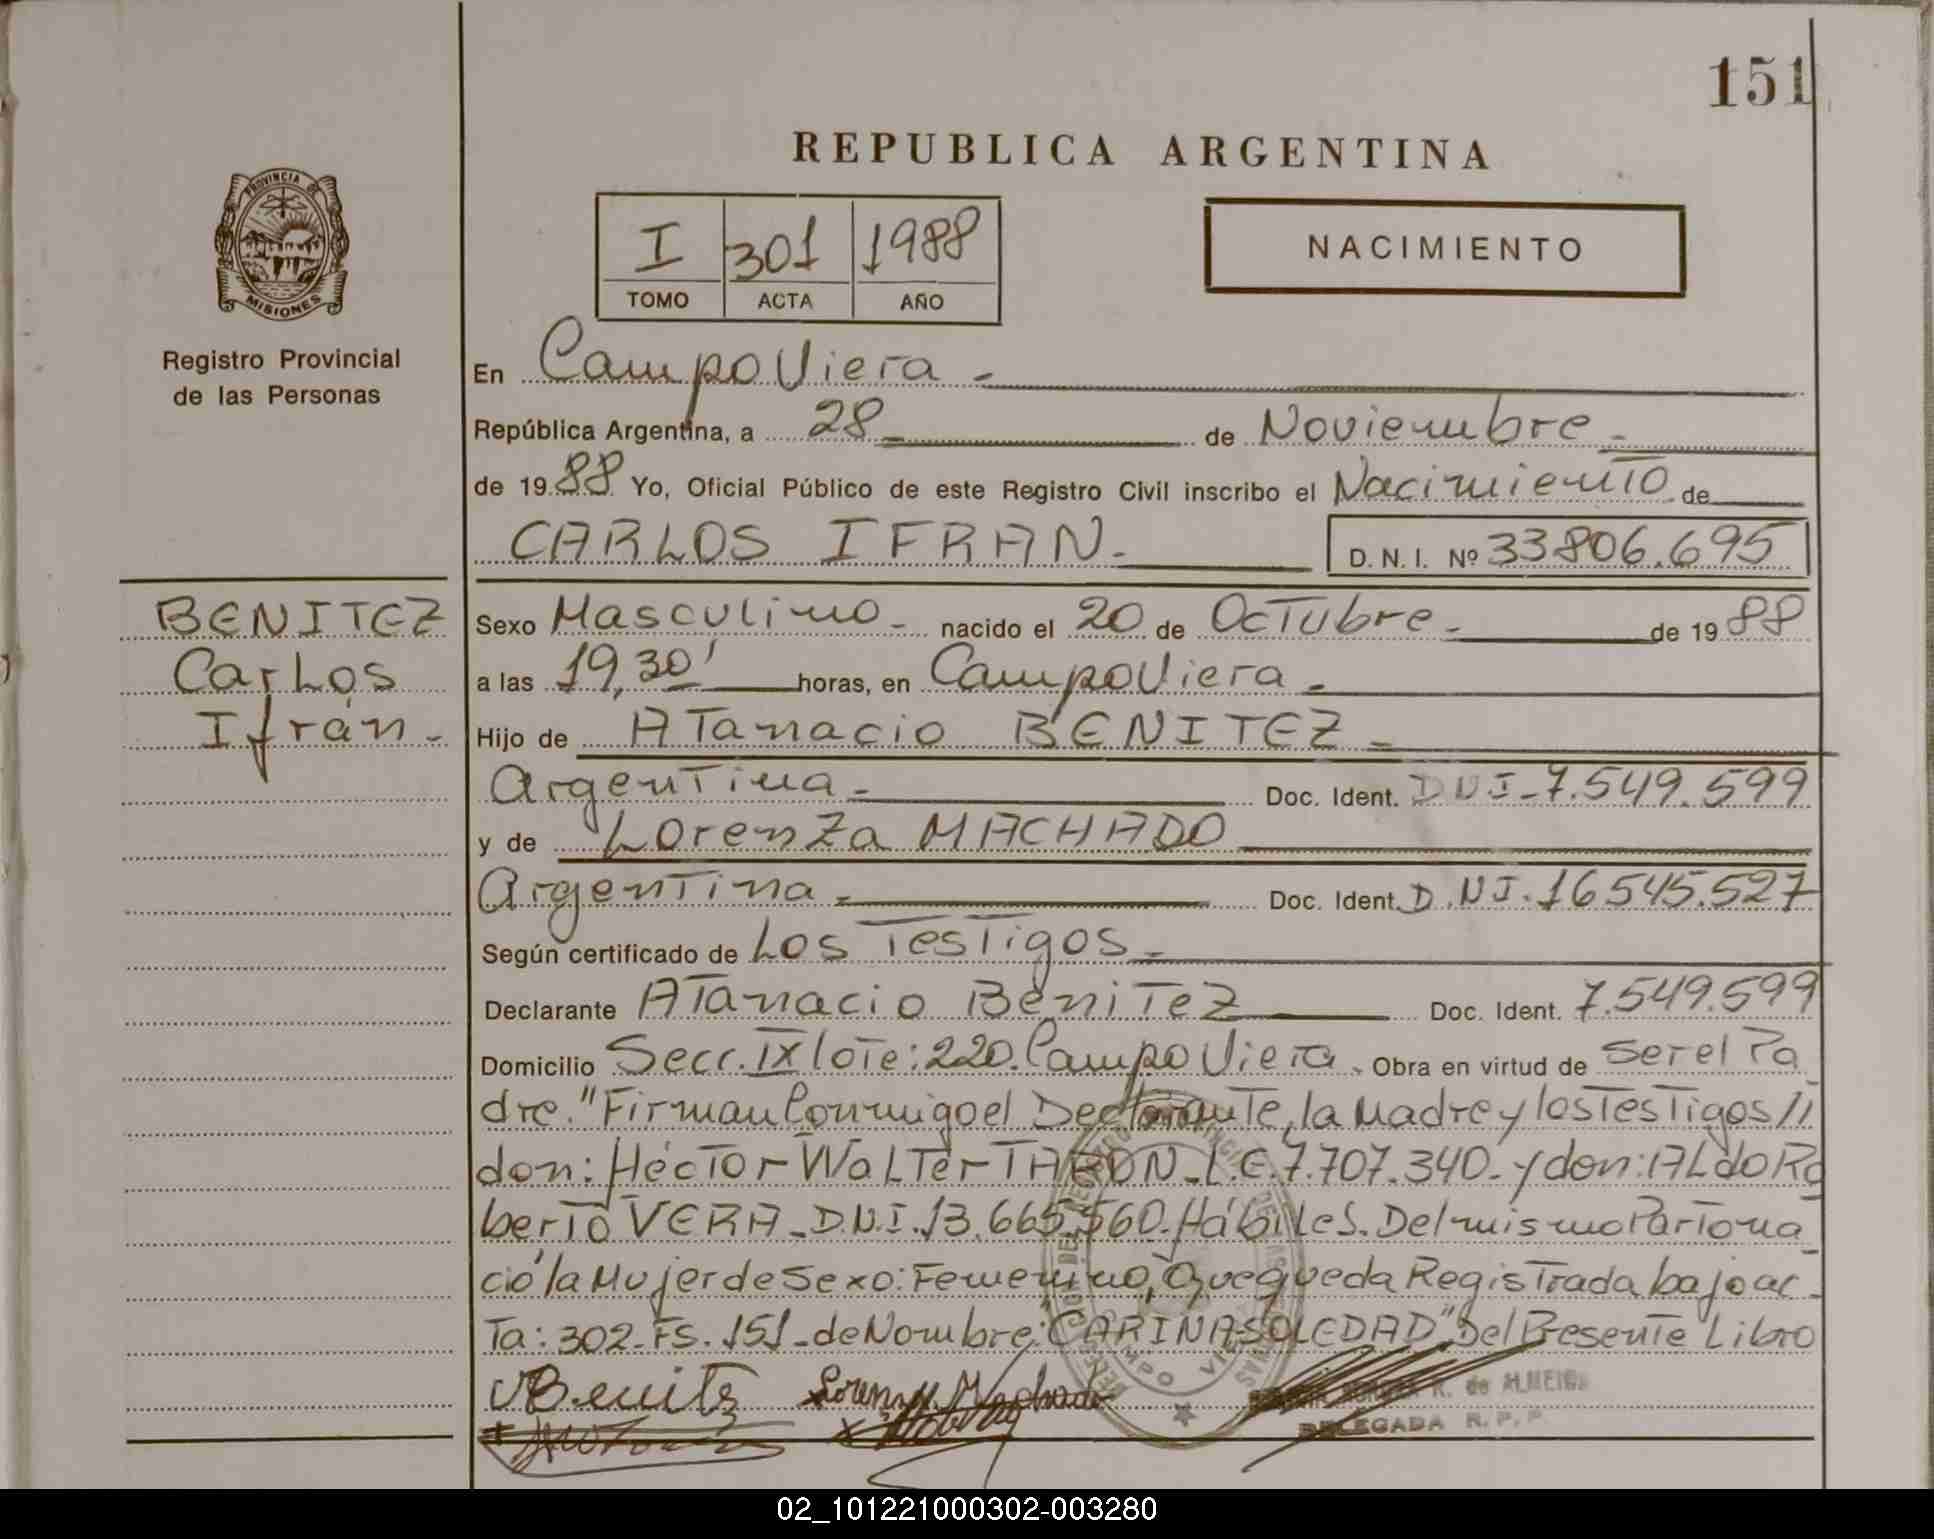 151
REPUBLICA ARGENTINA
PROVINCIA DE
MISIONES
Registro Provincial
de las Personas
I 301 1988
TOMO ACTA AÑO
NACIMIENTO
En Campo Viera -
República Argentina, a 28 de Noviembre -
de 1988 Yo, Oficial Público de este Registro Civil inscribo el Nacimiento de
CARLOS IFRAN.- D. N. I. Nº 33806.695
BENITEZ
Carlos
Ifrán -
Sexo Masculino - nacido el 20 de Octubre - de 1988
a las 19,30' horas, en Campo Viera -
Hijo de Atanacio BENITEZ -
Argentina - Doc. Ident. DNI-7.549.599
y de Lorenza MACHADO
Argentina - Doc. Ident. D.NI.16545.527
Según certificado de Los Testigos -
Declarante Atanacio Benitez Doc. Ident. 7.549.599
Domicilio Secc. IX lote: 220. Campo Viera. Obra en virtud de ser el Pa
dre." Firman Conmigo el Declarante, la Madre y los Testigos //
don: Héctor Walter L.E. 7.707.340- y don: Aldo Ro
berto VERA - D.N.I. 13.665.560. Hábiles. Del mismo Parto na
ció la Mujer de Sexo: Femenino, Que queda Registrada bajo ac-
ta: 302- Fs. 151- de Nombre: "CARINA SOLEDAD" Del Presente Libro
Benitz Machado
R. de ALMEIDA
DELEGADA R. P. P.
CAMPO VIERA
02_101221000302-003280